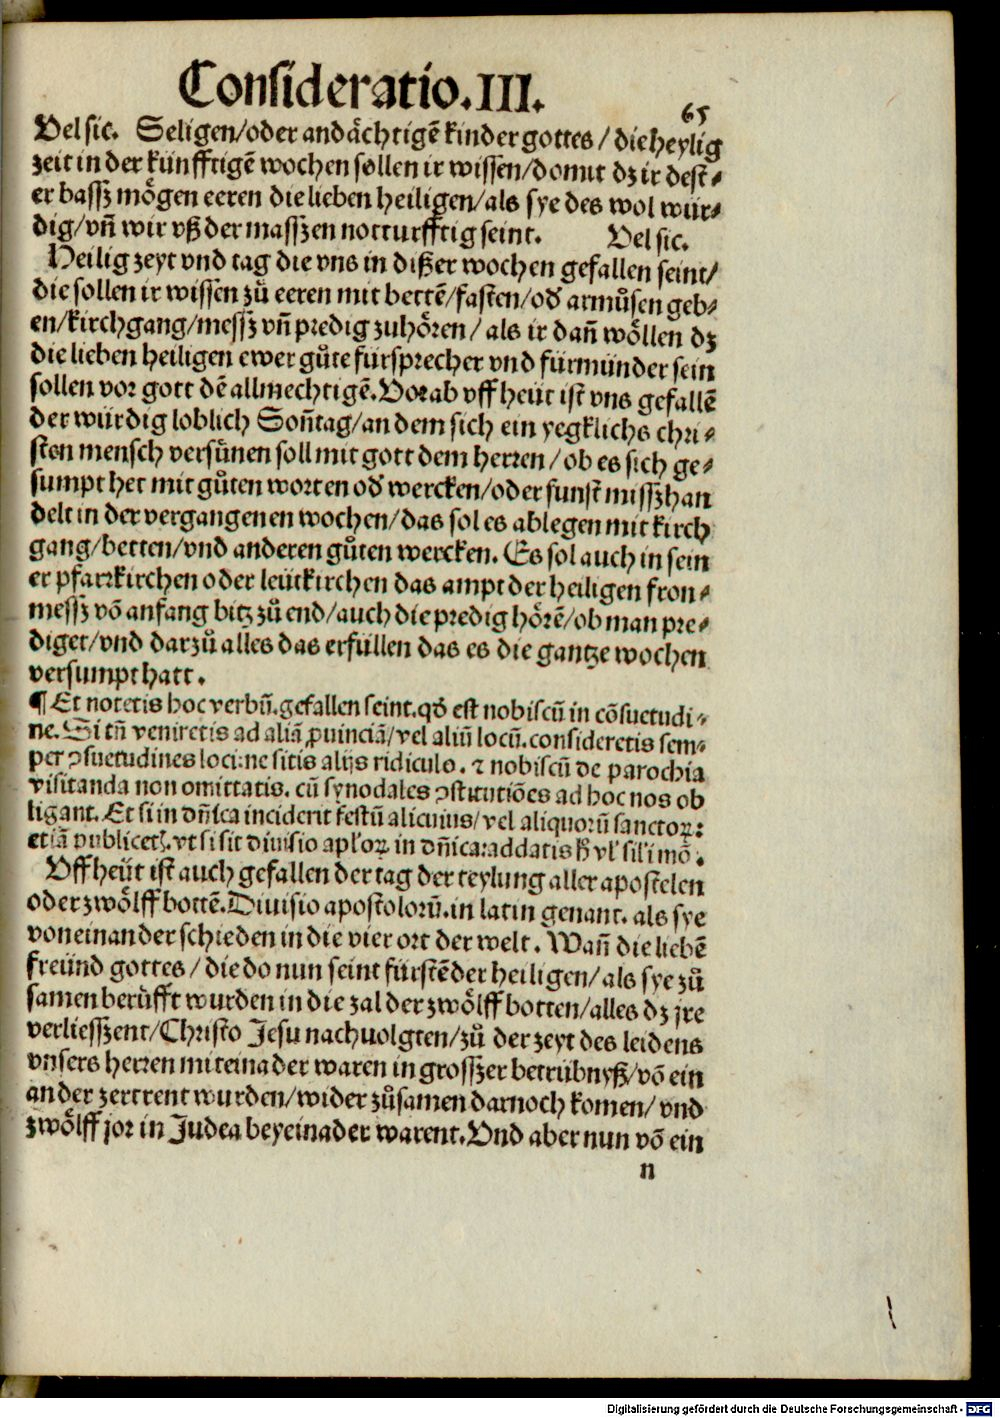 Consideratio.III.
65
Vel sic. Seligen/oder andächtigẽ kinder gottes/die heylig
zeit in der künfftigẽ wochen sollen ir wissen/domit dz ir dest⸗
er bassz mögen eeren die lieben heiligen/als sye des wol wür⸗
dig/vñ wir vß der masszen notturfftig seint. Vel sic.
Heilig zeyt vnd tag die vns in dißer wochen gefallen seint/
die sollen ir wissen zů eeren mit bettẽ/fasten/oď armůsen geb⸗
en/kirchgang/messz vñ predig zuhören/als ir dañ wöllen dz
die lieben heiligen ewer gůte fürsprecher vnd fürmünder sein
sollen vor gott dẽ allmechtigẽ. Vorab vff heüt ist vns gefallẽ
der würdig loblich Soñtag/an dem sich ein yegklichs chri⸗
sten mensch versünen soll mit gott dem herren/ob es sich ge⸗
sumpt het mit gůten worten oď wercken/oder sunst misszhan
delt in der vergangenen wochen/das sol es ablegen mit kirch
gang/betten/vnd anderen gůten wercken. Es sol auch in sein
er pfarrkirchen oder leütkirchen das ampt der heiligen fron⸗
messz võ anfang bitz zů end/auch die predig hörẽ/ob man pre⸗
diget/vnd darzů alles das erfüllen das es die gantze wochen
versumpt hatt.
¶ Et notetis hoc verbũ. gefallen seint. qď est nobiscũ in cõsuetudi⸗
ne. Si tñ veniretis ad aliã ꝓuinciã/vel aliũ locũ. consideretis sem⸗
per ꝯsuetudines loci: ne sitis alijs ridiculo. ⁊ nobiscũ de parochia
visitanda non omittatis. cũ synodales ꝯstitutiões ad hoc nos ob
ligant. Et si in dñica inciderit festũ alicuius/vel aliquorũ sanctoꝝ:
etiã publicetʳ. vt si sit diuisio apl'oꝝ in dñica: addatis ß vl' sil'i mõ.
Vff heüt ist auch gefallen der tag der teylung aller apostelen
oder zwölff bottẽ. Diuisio apostolorũ. in latin genant. als sye
voneinander schieden in die vier ort der welt. Wañ die liebẽ
freünd gottes/die do nun seint fürstẽ der heiligen/als sye zů
samen berüfft wurden in die zal der zwölff botten/alles dz jre
verliesszent/Christo Jesu nachuolgten/zů der zeyt des leidens
vnsers herren miteinader waren in grosszer betrübnyß/võ ein
ander zertrent wurden/wider zůsamen darnoch komen/vnd
zwölff jor in Judea beyeinader warent. Vnd aber nun võ ein
n
Digitalisierung gefördert durch die Deutsche Forschungsgemeinschaft - DFG